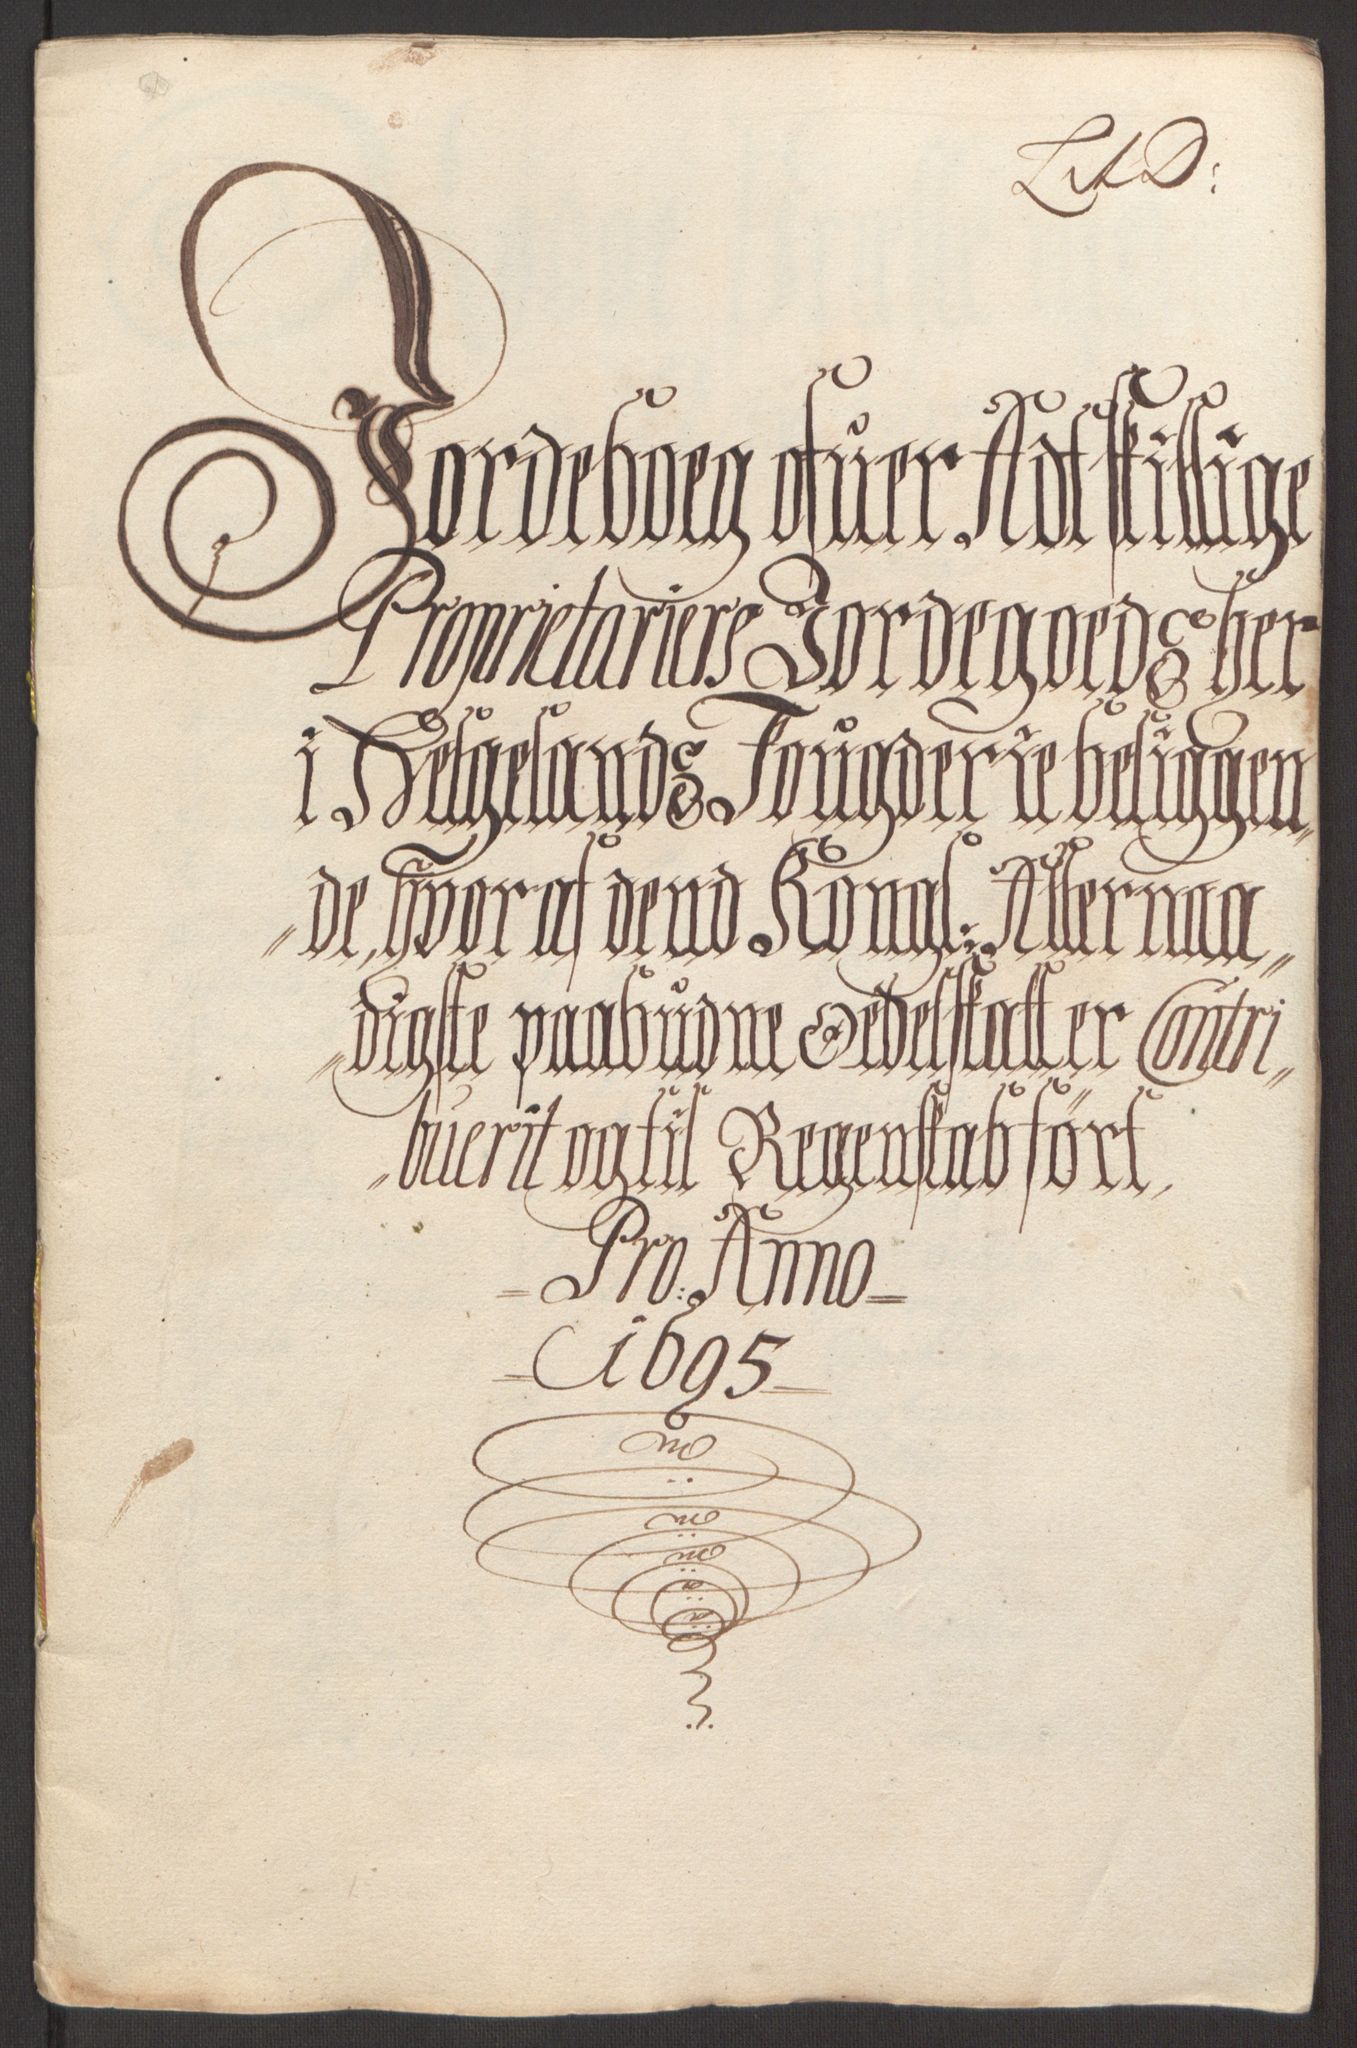 Lit D:
Jordeboeg ofuer Adtskillige
Proprietariers Jordegoeds her
i Helgelands Fougderie beliggen„
„de, hvoraf dend Kongl: Allernaa„
„digste paabudne Oedelsskatt er Contri„
„buerit og til Regenskab fört,
Pro: Anno
1695